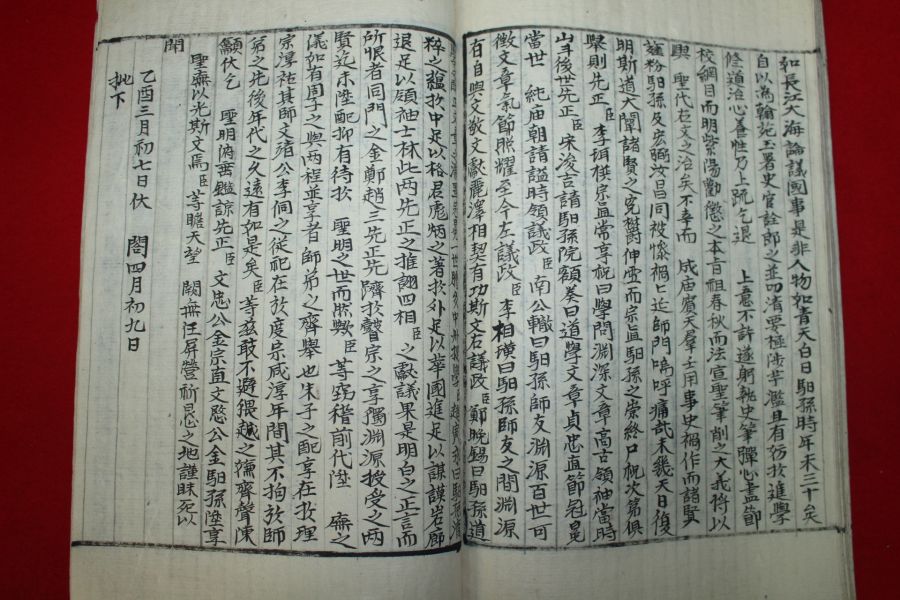 如長江大海論議國事是非人物如靑天白日馹孫時年未三十矣
自以爲翰苑玉署史官詮郎之並叨淸要極涉芉濫且有妨於進學
修道治心養性乃上疏乞退 上意不許遂躬執史筆殫心盡節
校綱目而明紫陽勸懲之本旨祖春秋而法宣聖筆削之大義將以
興 聖代右文之治矣不幸而 成庙賓天羣士用事史禍作而諸賢
馹孫及 同被慘禍 師門嗚呼痛哉未幾天日復
明斯道大闡諸賢之寃欝伸雪而宗直馹孫之崇終尸祝次第俱
擧則先正臣李珥撰宗直常享祝曰學問淵深文章高古領袖當時
山斗後世先正臣宋浚吉請馹孫院額奏曰道學文章貞忠直節冠冕
當世 純庙朝請謚時領議政臣南公轍曰馹孫師友淵源百世可
徵文章氣節照耀至今左議政臣李相璜曰馹孫師友之間淵源
有自與文敬文獻麗澤相契有功斯文右議政臣鄭晩錫曰馹孫道
粹之蘊於中足以格君彪炳之著於外足以華國進足以謀謨岩廊
退足以領袖士林此兩先正之推詡四相臣之獻議果是明白之正言而
所恨者同門之金鄭趙三先正先躋於聖宗之享獨淵源授受之兩
賢迄未陞配抑有待於 聖明之世而然歟臣等竊稽前代陞 廡之
儀如有周子之與兩程並享者師弟之齊擧也朱子之配享在於理
宗淳祐其師文靖公李侗之從祀在於度宗咸淳年間其不拘於師
弟之先後年代之久遠有如是矣臣等玆敢不避猥越之嫌齊聲陳
籲伏乞 聖明俯垂鑑諒先正臣文忠公金宗直文愍公金馹孫陞享
聖廡以光斯文焉臣等瞻天望 闕無任屛營祈懇之地謹昧死以
聞
乙酉三月初七日伏 閤四月初九日
批下